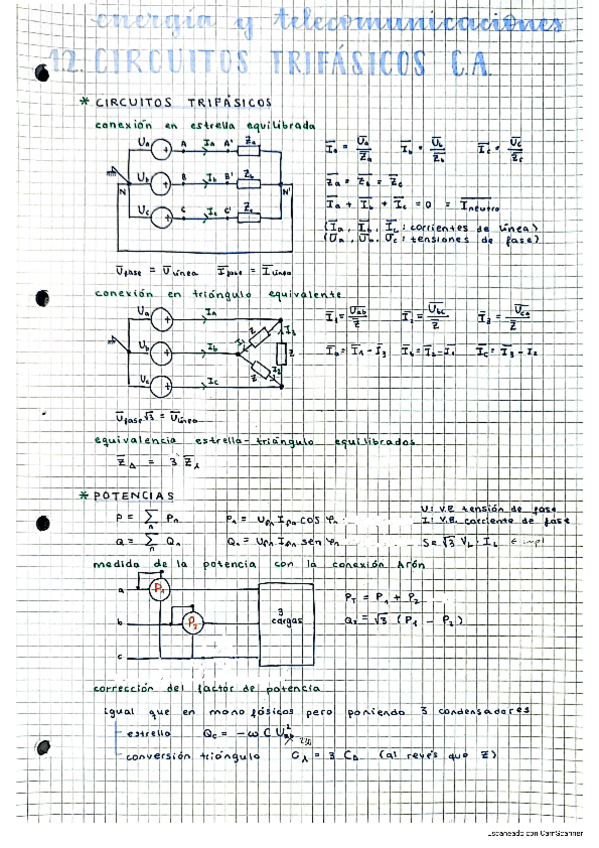 energía y telecomunicaciones
12. CIRCUITOS TRIFÁSICOS C.A.
* CIRCUITOS TRIFÁSICOS
conexión en estrella equilibrada
Ua A Ia A' Za
Ub B Ib B' Zb
N N'
Uc C Ic C' Zc
Īa = Ūa/Z̄a Īb = Ūb/Z̄b Īc = Ūc/Z̄c
Z̄a = Z̄b = Z̄c
Īa + Īb + Īc = 0 = Īneutro
(Īa, Īb, Īc : corrientes de línea)
(Ūa, Ūb, Ūc : tensiones de fase)
Ūfase = Ūlínea Īfase = Īlínea
conexión en triángulo equivalente
Ua Ia
Ub Ib
Uc Ic
Z I1 I3 Z
Z I2
Ī1 = Ūab/Z̄ Ī2 = Ūbc/Z̄ Ī3 = Ūca/Z̄
Īa = Ī1 - Ī3 Īb = Ī2 - Ī1 Īc = Ī3 - Ī2
Ūfase √3 = Ūlínea
equivalencia estrella-triángulo equilibrados
Z̄Δ = 3 Z̄⅄
* POTENCIAS
P = Σn Pn Pn = Ufn Ifn cos φn
Q = Σn Qn Qn = Ufn Ifn sen φn
U: V.E. tensión de fase
I: V.E. corriente de fase
S = √3 VL · IL
medida de la potencia con la conexión Arón
a P1
b P2
c
3 cargas
PT = P1 + P2
QT = √3 (P1 - P2)
corrección del factor de potencia
igual que en monofásicos pero poniendo 3 condensadores
estrella Qc = -ω C U²
conversión triángulo C⅄ = 3 CΔ (al revés que Z)
Escaneado con CamScanner